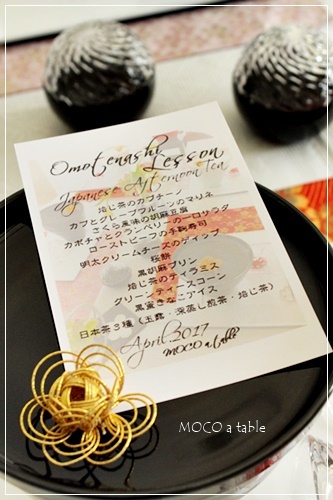 Omotenashi Lesson
Japanese Afternoon Tea
焙じ茶のカプチーノ
カブとグレープフルーツのマリネ
さくら風味の胡麻豆腐
カボチャとクランベリーの一口サラダ
ローストビーフの手鞠寿司
明太クリームチーズのディップ
桜餅
黒胡麻プリン
焙じ茶のティラミス
グリーンティースコーン
黒蜜きなこアイス
日本茶3種（玉露・深蒸し煎茶・焙じ茶）
April.2017
MOCO a table
MOCO a table